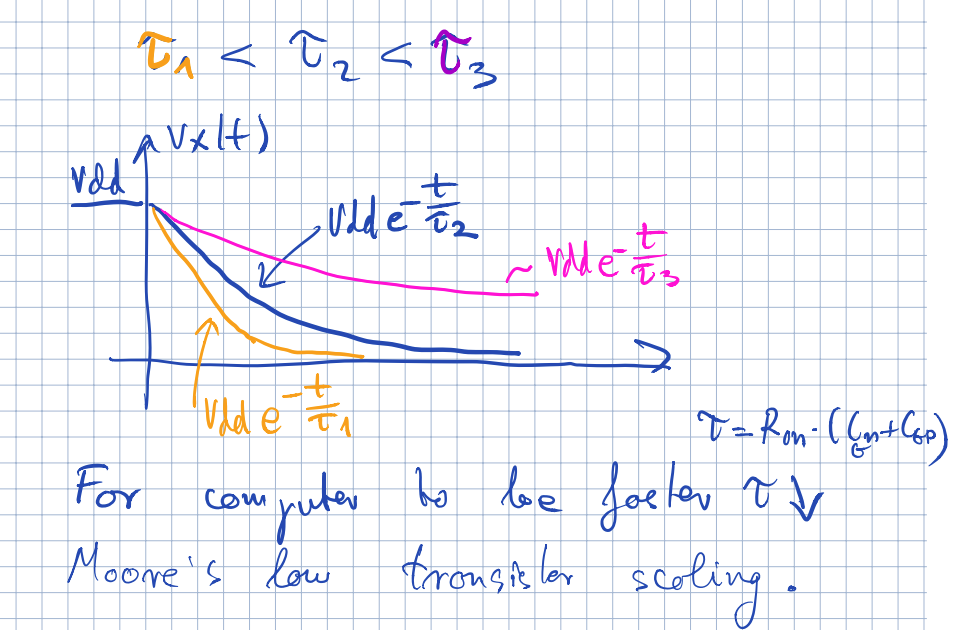 τ1 < τ2 < τ3
Vx(t)
Vdd
Vdd e^-t/τ2
Vdd e^-t/τ3
Vdd e^-t/τ1
τ = Ron · (CGn + CGp)
For computer to be faster τ ↓
Moore's law transistor scaling.